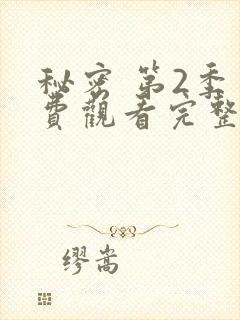 秘密 第2季
費觀看完整
缪嵩